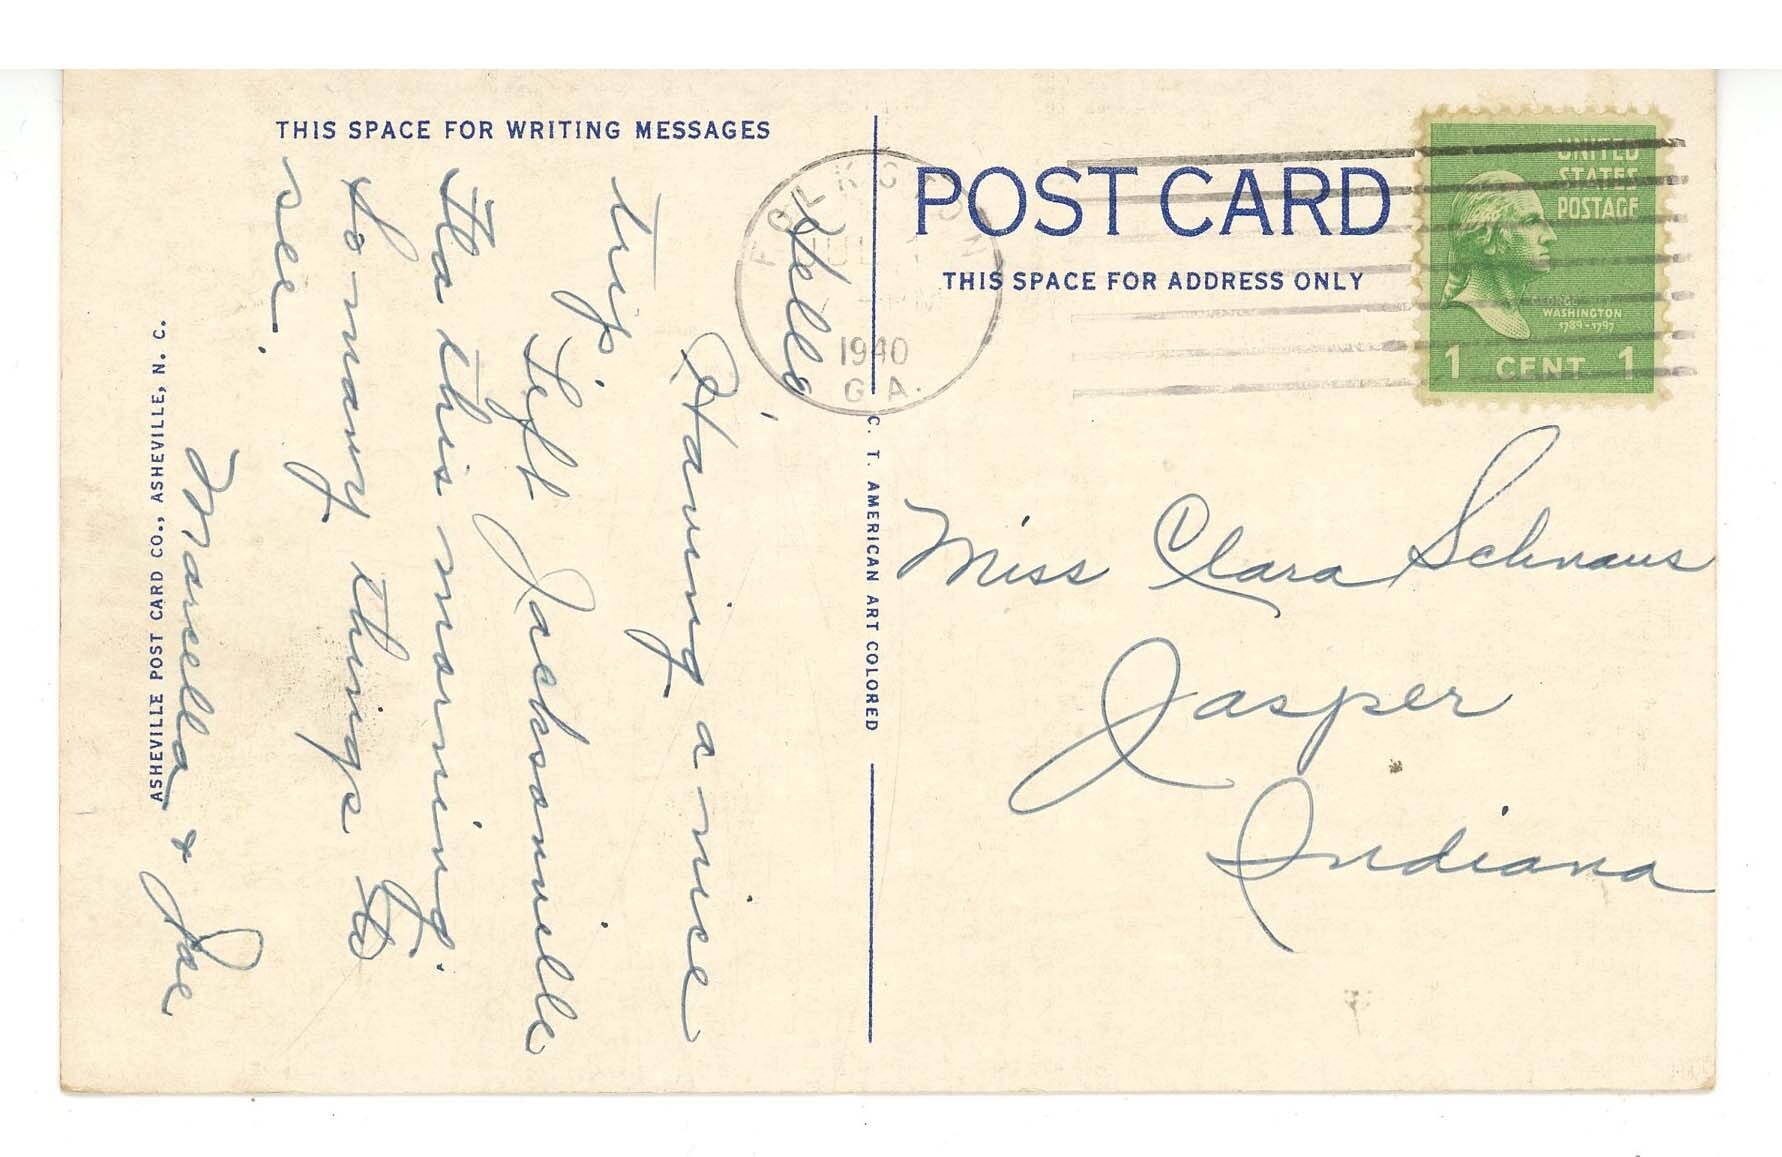 THIS SPACE FOR WRITING MESSAGES
Hello
Having a nice
trip.
Left Jacksonville
Fla this morning.
So many things to
see.
Marcella & Joe
ASHEVILLE POST CARD CO., ASHEVILLE, N. C.
C. T. AMERICAN ART COLORED
FOLKSTON
JUL
1940
GA.
POST CARD
THIS SPACE FOR ADDRESS ONLY
UNITED
STATES
POSTAGE
GEORGE
WASHINGTON
1789-1797
1 CENT 1
Miss Clara Schnaus
Jasper
Indiana